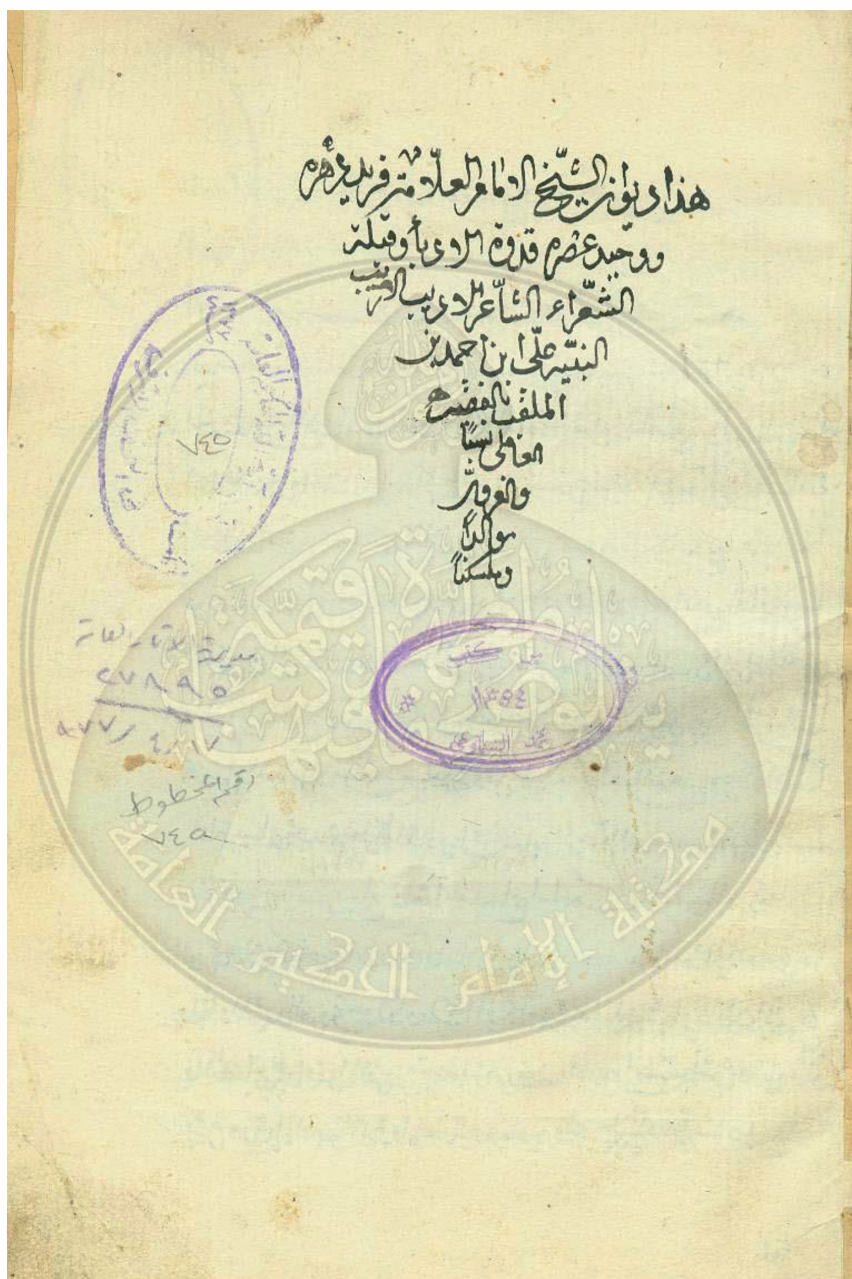 هذا ديوان الشيخ الامام العلامة فريد دهره
ووحيد عصره قدوة الادباء وقبلة
الشعراء الشاعر الاديب الاريب
النبيه علي ابن احمد بن
الملقب بالفقيه
العاملي نسباً
والغروي
مولداً
ومسكناً
٧٤٥
كتب
١٣٥٤
محمد السماوي
مديرية الآثار العامة
٢٧٨٩٥
رقم المخطوط
٧٤٥
يتلو صحفا مطهرة فيها كتب قيمة
مكتبة الإمام الحكيم العامة